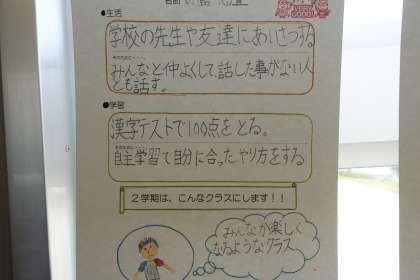 VERY GOOD!
●生活
学校の先生や友達にあいさつする
そのために・・・
みんなと仲よくして、話した事がない人
とも話す。
●学習
漢字テストで100点をとる。
そのために・・・
自主学習で自分に合ったやり方をする
2学期は、こんなクラスにします！！
みんなが楽しく
なるようなクラス